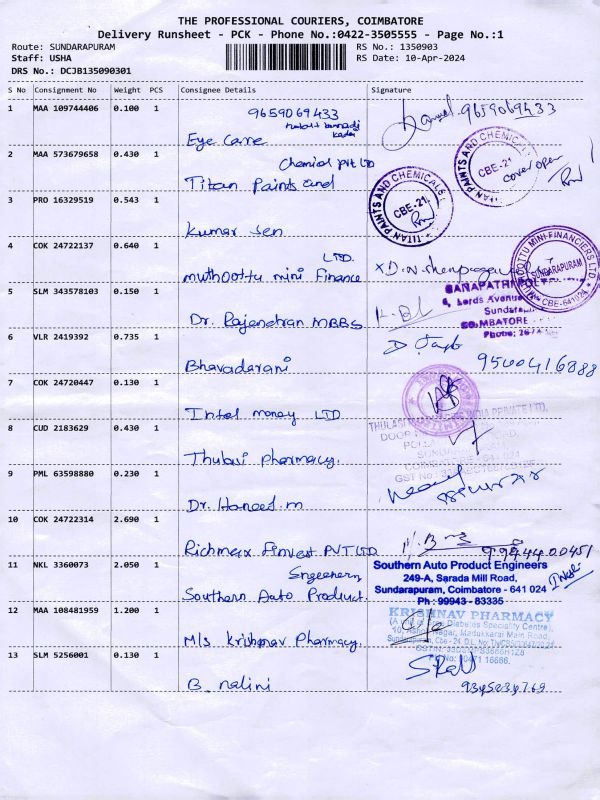 THE PROFESSIONAL COURIERS, COIMBATORE
Delivery Runsheet - PCK - Phone No.:0422-3505555 - Page No.:1
Route: SUNDARAPURAM
RS No.: 1350903
Staff: USHA
RS Date: 10-Apr-2024
DRS No.: DCJB135090301
S No Consignment No Weight PCS Consignee Details Signature
1 MAA 109744406 0.100 1 9659069433
9659069433
Eye Care
2 MAA 573679658 0.430 1 Chemical Pvt LTD
Titan Paints and
TITAN PAINTS AND CHEMICALS
CBE-21.
TITAN PAINTS AND CHEMICALS
CBE-21
cover open
3 PRO 16329519 0.543 1
Kumar Sen
4 COK 24722137 0.640 1 LTD.
muthoottu mini Finance
MINI-FINANCIERS LTD
SUNDARAPURAM
CBE-641024
5 SLM 343578103 0.150 1
Dr. Rajendran MBBS
GANAPATHI
4, Lords Avenue
COIMBATORE
Phone:
6 VLR 2419392 0.735 1
Bhavadarani
9500416888
7 COK 24720447 0.130 1
Intel money LTD
8 CUD 2183629 0.430 1
Thulasi Pharmacy.
INDIA PRIVATE LTD,
9 PML 63598880 0.230 1
Dr. Haneed.m
10 COK 24722314 2.690 1
Richmax Finvest PVT LTD
9994400451
11 NKL 3360073 2.050 1 Engeenern
Southern Auto Product.
Southern Auto Product Engineers
249-A, Sarada Mill Road,
Sundarapuram, Coimbatore - 641 024
Ph : 99943 - 83335
12 MAA 108481959 1.200 1
M/s Krishnav Pharmacy.
KRISHNAV PHARMACY
(A Unit of Diabetes Speciality Centre)
Nagar, Madukkarai Main Road,
13 SLM 5256001 0.130 1
B. nalini
9345234769